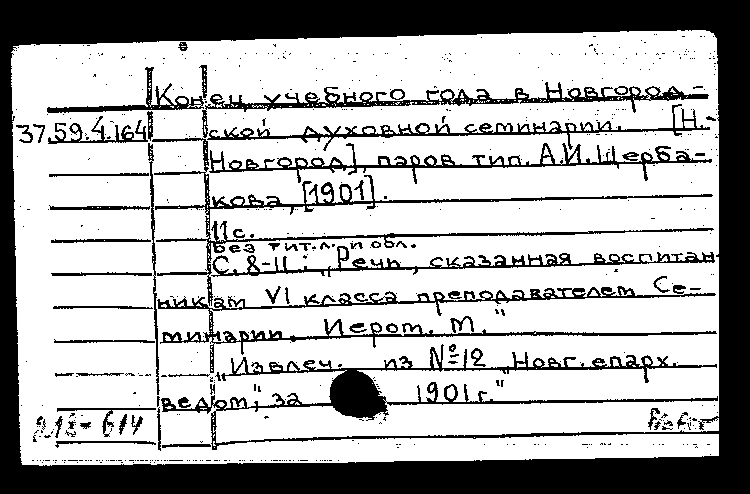 Конец учебного года в Новгород-
37.59.4.164 ской духовной семинарии. [Н.-
Новгород], паров. тип. А.И. Щерба-
кова, [1901].
11с.
Без тит.л. и обл.
С. 8-11: "Речь, сказанная воспитан-
никам VI класса преподавателем Се-
минарии. Иером. М."
"Извлеч. из №12 "Новг. епарх.
ведом", за 1901г."
212-614